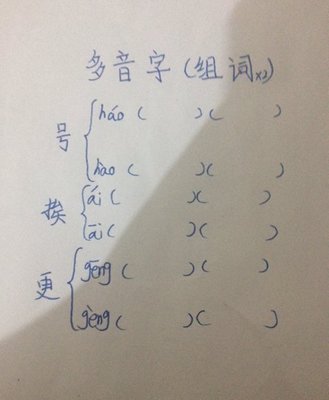 多音字(组词x2)
号 háo ( )( )
hào ( )( )
挨 ái ( )( )
āi ( )( )
更 gēng ( )( )
gèng ( )( )